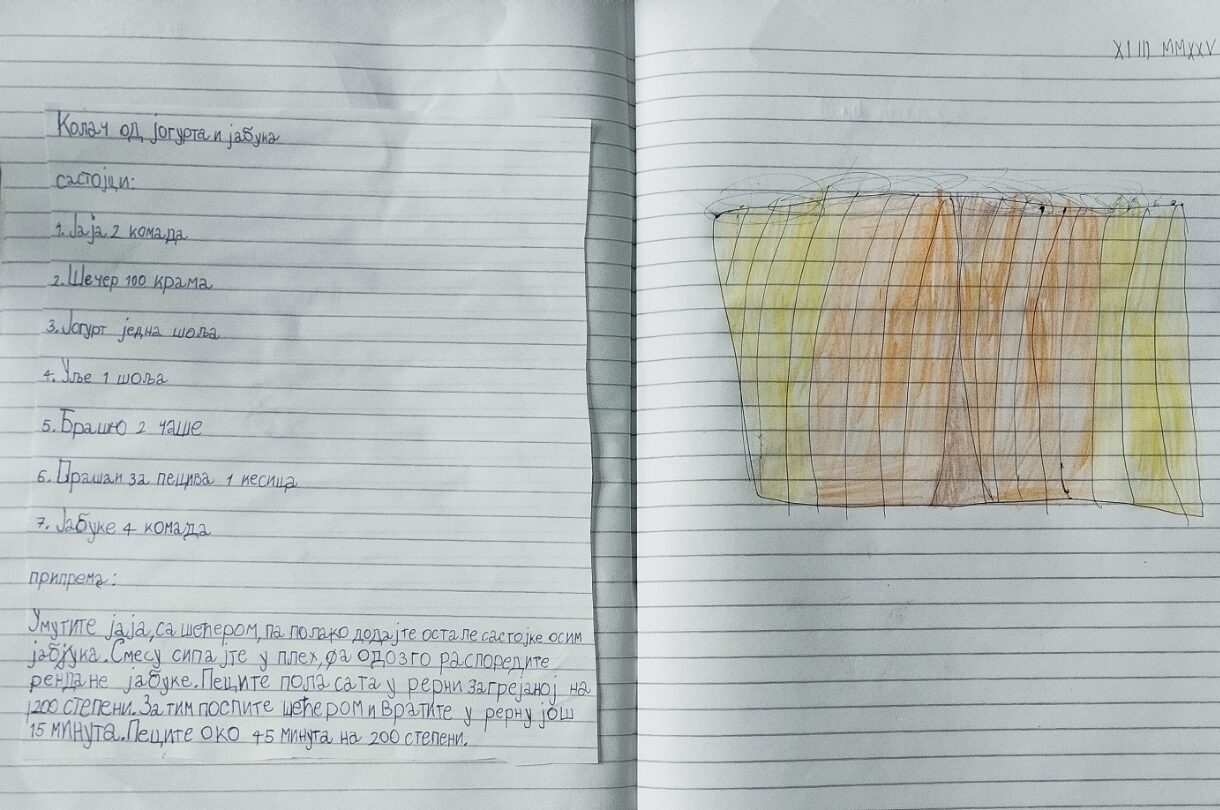 Колач од јогурта и јабука
састојци:
1. Јаја 2 комада
2. Шечер 100 крама
3. Јогурт једна шоља
4. Уље 1 шоља
5. Брашно 2 чаше
6. Прашак за пецива 1 кесица
7. Јабуке 4 комада
припрема:
Умутите јаја, са шећером, па полако додајте остале састојке осим
јабјука. Смесу сипајте у плех, да одозго распоредите
рендане јабуке. Пеците пола сата у рерни загрејаној на
200 степени. Затим поспите шећером и вратите у рерну још
15 минута. Пеците око 45 минута на 200 степени.
XI III MMXXV